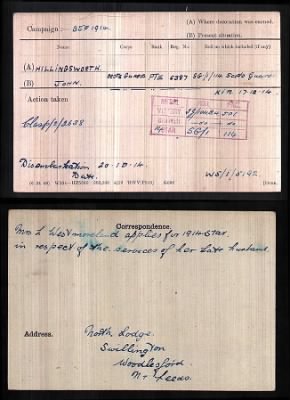 Campaign :— B.E.F 1914.
(A) Where decoration was earned.
(B) Present situation.
Name Corps Rank Reg. No. Roll on which included (if any)
(A) HILLINGSWORTH
(B) JOHN. Scots Guards Pte 6387 SG/1/14 Scots Guards
Action taken KIA 17-12-14.
MEDAL ROLL PAGE
VICTORY
BRITISH —do—
14 STAR SG/1 114
Clasp
Disembarkation 20-10-14.
Date.
Correspondence.
Mrs L Westmoreland applies for 1914 Star
in respect of the services of her late husband.
Address. North Lodge.
Swillington
Woodlesford
Nr Leeds.